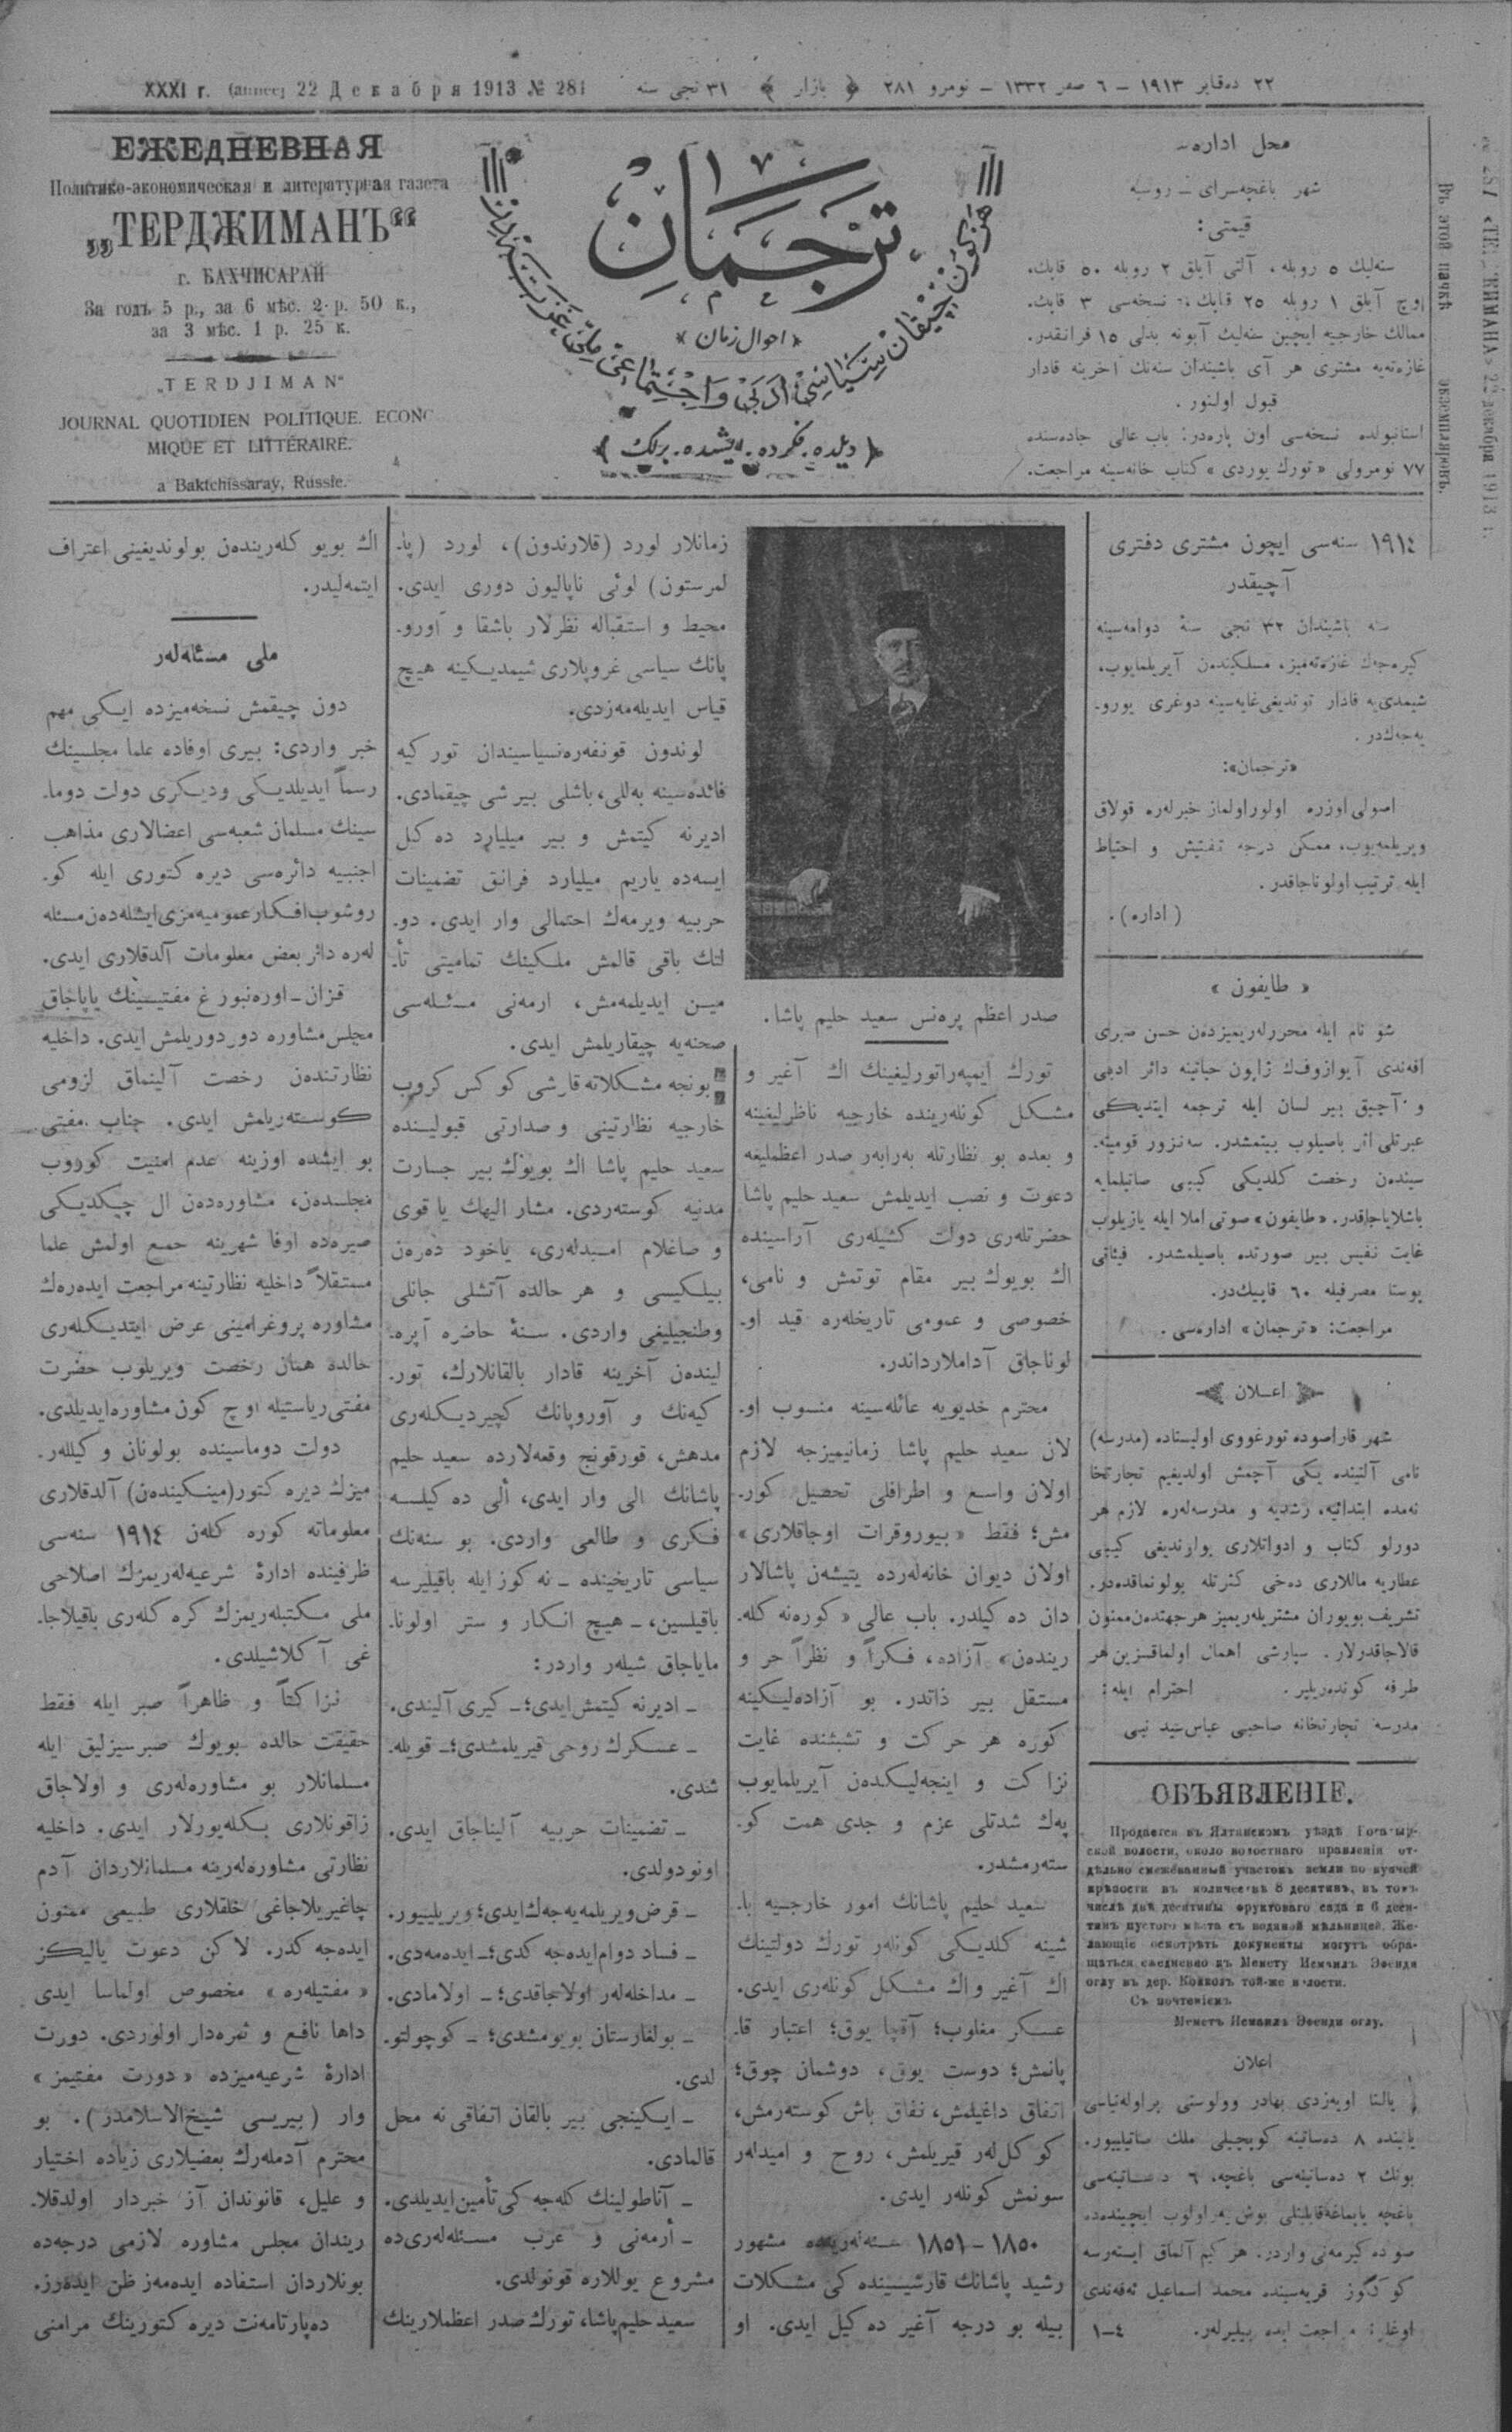 ٢٢ دەقابر ١٩١٣ – ٦ صفر ١٣٣٢ – نومرو ٢٨١ ﴿ بازار ﴾ ٣١ نجی سنه
XXXI г. (annee) 22 Декабря 1913 № 281
محل اداره‌سی
شهر باغچه‌سرای – روسیه
قیمتی:
سنه‌لیك ٥ روبله، آلتی آیلق ٢ روبله ٥٠ قاپك،
اوچ آیلق ١ روبله ٢٥ قاپك، نسخه‌سی ٣ قاپك.
ممالك خارجیه ایچین سنه‌لیك آبونه بدلی ١٥ فرانقدر.
غازه‌ته‌یه مشتری هر آی باشیندان سنه‌نك آخرینه قادار
قبول اولنور.
استانبولده نسخه‌سی اون پاره‌در: باب عالی جاده‌سنده
٧٧ نومرولی «تورك یوردی» كتاب خانه‌سینه مراجعت.
ترجمان
﴿احوال زمان﴾
هر كون چیقان سیاسی، ادبی و اجتماعی ملی غزته‌در
﴿ دیلده، فكرده، ایشده، برلك ﴾
ЕЖЕДНЕВНАЯ
Политико-экономическая и литературная газета
„ТЕРДЖИМАНЪ“
г. БАХЧИСАРАЙ
За годъ 5 р., за 6 мѣс. 2 р. 50 к.,
за 3 мѣс. 1 р. 25 к.
„TERDJIMAN“
JOURNAL QUOTIDIEN POLITIQUE. ECONO
MIQUE ET LITTÉRAIRE.
a Baktchissaray, Russie.
Въ этой пачкѣ экземпляровъ.
«ТЕРДЖИМАНА» 22 декабря 1913 г.
١٩١٤ سنه‌سی ایچون مشتری دفتری
آچیقدر
سنه باشیندان ٣٢ نجی سنهٔ دوامه‌سینه
كیره‌جك غازه‌ته‌میز، مسلكیندن آیریلمایوب،
شیمدی‌یه قادار توتدیغی غایه‌سینه دوغری یورو-
یه‌جه‌كدر.
«ترجمان»:
اصولی اوزره اولور اولماز خبرله‌ره قولاق
ویریلمه‌یوب، ممكن درجه تفتیش و احتیاط
ایله ترتیب اولوناجاقدر.
(اداره).
« طایفون »
شو نام ایله محررله‌ریمیزده‌ن حسن صبری
افه‌ندی آیوازوفك ژاپون حیاتینه دائر ادبی
و آچیق بیر لسان ایله ترجمه ایتدیكی
عبرتلی اثر باصیلوب بیتمشدر. سه‌نزور قومیته-
سیندن رخصت كلدیكی كیبی صاتیلمایه
باشلایاجاقدر. «طایفون» صوتی املا ایله یازیلوب
غایت نفیس بیر صورتده باصیلمشدر. فیئاتی
پوستا مصرفیله ٦٠ قاپیك‌در.
مراجعت: «ترجمان» اداره‌سی.
اعلان
شهر قاراصوده تورغووی اولیستاده (مدرسه)
نامی آلتینده یكی آچمش اولدیغیم تجارتخا
نه‌مده ابتدائیه، رشدیه و مدرسه‌له‌ره لازم هر
دورلو كتاب و ادواتلاری بولوندیغی كیبی
عطاریه ماللاری ده‌خی كثرتله بولونماقده‌در.
تشریف بویوران مشتریله‌ریمیز هر جهتدن ممنون
قالاجاقدرلار. سپارشی اهمال اولماقسزین هر
طرفه كونده‌ریلیر. احترام ایله:
مدرسه تجارتخانه صاحبی عباس سید نبی
ОБЪЯВЛЕНІЕ.
Продается въ Ялтинскомъ уѣздѣ Богатыр-
ской волости, около волостнаго правленія от-
дѣльно смежёванный участокъ земли по купчей
крѣпости въ количествѣ 8 десятинъ, въ томъ
числѣ двѣ десятины фруктоваго сада и 6 деся-
тинъ пустого мѣста съ водяной мѣльницей. Же-
лающіе осмотрѣть документы могутъ обра-
щаться ежедневно къ Мемету Исмаилъ Эфенди
оглу въ дер. Коккозъ той-же волости.
Съ почтеніемъ
Меметъ Исмаилъ Эфенди оглу.
اعلان
یالتا اویه‌زدی بهادر وولوستی پراوله‌نیاسی
یانینده ٨ ده‌ساتینه كوپچیلی ملك صاتیلییور.
بونك ٢ ده‌ساتینه‌سی باغچه، ٦ ده‌ساتینه‌سی
باغچه یاپماغه قابلیتلی بوش یر اولوب ایچینده‌ده
صو ده‌كیرمه‌نی واردر. هر كیم آلماق ایسته‌رسه
كوككوز قریه‌سینده محمد اسماعیل ئه‌فه‌ندی
اوغلینه مراجعت ایده بیلیرلر. ٤–١
صدر اعظم پره‌نس سعید حلیم پاشا.
تورك ایمپه‌راتورلیغینك اك آغیر و
مشكل كونله‌رینده خارجیه ناظرلیغینه
و بعده بو نظارتله به‌رابه‌ر صدر اعظملیغه
دعوت و نصب ایدیلمش سعید حلیم پاشا
حضرتله‌ری دولت كشیله‌ری آراسینده
اك بویوك بیر مقام توتمش و نامی،
خصوصی و عمومی تاریخله‌ره قید او-
لوناجاق آداملارداندر.
محترم خدیویه عائله‌سینه منسوب او-
لان سعید حلیم پاشا زمانیمیزجه لازم
اولان واسع و اطرافلی تحصیل كور-
مش؛ فقط «بیوروقرات اوجاقلاری»
اولان دیوان خانه‌له‌رده یتیشه‌ن پاشالار
دان ده كیلدر. باب عالی «كوره‌نه كله-
رینده‌ن» آزاده، فكراً و نظراً حر و
مستقل بیر ذاتدر. بو آزاده‌لیكینه
كوره هر حركت و تشبثنده غایت
نزاكت و اینجه‌لیكده‌ن آیریلمایوب
په‌ك شدتلی عزم و جدی همت كو-
سته‌رمشدر.
سعید حلیم پاشانك امور خارجیه با-
شینه كلدیكی كونله‌ر تورك دولتینك
اك آغیر و اك مشكل كونله‌ری ایدی.
عسكر مغلوب؛ آقچا یوق؛ اعتبار قا-
پانمش؛ دوست یوق، دوشمان چوق؛
اتفاق داغیلمش، نفاق باش كوسته‌رمش،
كوكل‌له‌ر قیریلمش، روح و امیدله‌ر
سونمش كونله‌ر ایدی.
١٨٥٠ – ١٨٥١ سنه‌له‌رینده مشهور
رشید پاشانك قارشیسینده كی مشكلات
بیله بو درجه آغیر ده كیل ایدی. او
زمانلار لورد (قلارندون)، لورد (پا-
لمرستون) لوئی ناپالیون دوری ایدی.
محیط و استقباله نظرلار باشقا و آورو-
پانك سیاسی غروپلاری شیمدیكینه هیچ
قیاس ایدیله‌مه‌زدی.
لوندون قونفه‌ره‌نسیاسیندان توركیه
فائده‌سینه به‌للی، باشلی بیر شی چیقمادی.
ادیرنه كیتمش و بیر میلیارد ده كل
ایسه‌ده یاریم میلیارد فرانق تضمینات
حربیه ویرمه‌ك احتمالی وار ایدی. دو-
لتك باقی قالمش ملكینك تمامیتی تأ-
مین ایدیلمه‌مش، ارمه‌نی مسئله‌سی
صحنه‌یه چیقاریلمش ایدی.
بونجه مشكلاته قارشی كوكس كروب
خارجیه نظارتینی و صدارتی قبولینده
سعید حلیم پاشا اك بویوك بیر جسارت
مدنیه كوسته‌ردی. مشار الیهك یا قوی
و صاغلام امیدله‌ری، یاخود ده‌ره‌ن
بیلكیسی و هر حالده آتشلی جانلی
وطنجیلیغی واردی. سنهٔ حاضره آپره-
لینده‌ن آخرینه قادار بالقانلارك، تور-
كیه‌نك و آوروپانك كچیردیكله‌ری
مدهش، قورقونچ وقعه‌لارده سعید حلیم
پاشانك الی وار ایدی، ألی ده كیلسه
فكری و طالعی واردی. بو سنه‌نك
سیاسی تاریخینده – نه كوز ایله باقیلیرسه
باقیلسین، – هیچ انكار و ستر اولونا-
مایاجاق شیله‌ر واردر:
– ادیرنه كیتمش ایدی؛ – كیری آلیندی.
– عسكرك روحی قیریلمشدی؛ – قویله-
شدی.
– تضمینات حربیه آلیناجاق ایدی.
اونودولدی.
– قرض ویریلمه‌یه‌جه‌ك ایدی؛ ویریلییور.
– فساد دوام ایده‌جه كدی؛ – ایده‌مه‌دی.
– مداخله‌له‌ر اولاجاقدی؛ – اولامادی.
– بولغارستان بویومشدی؛ – كوچولتو-
لدی.
– ایكینجی بیر بالقان اتفاقی نه محل
قالمادی.
– آناطولینك كله‌جه كی تأمین ایدیلدی.
– أرمه‌نی و عرب مسئله‌له‌ری‌ده
مشروع یوللاره قونولدی.
سعید حلیم پاشا، تورك صدر اعظملارینك
اك بویوكله‌رینده‌ن بولوندیغینی اعتراف
ایتمه‌لیدر.
ملی مسئله‌له‌ر
دون چیقمش نسخه‌میزده ایكی مهم
خبر واردی: بیری اوفاده علما مجلسینك
رسماً ایدیلدیكی و دیكری دولت دوما-
سینك مسلمان شعبه‌سی اعضالاری مذاهب
اجنبیه دائره‌سی دیره كتوری ایله كو-
روشوب افكار عمومیه‌مزی ایشله‌ده‌ن مسئله
له‌ره دائر بعض معلومات آلدقلاری ایدی.
قزان – اوره‌نبورغ مفتیسینك یاپاجاق
مجلس مشاوره دوردوریلمش ایدی. داخلیه
نظارتنده‌ن رخصت آلینماق لزومی
كوسته‌ریلمش ایدی. جناب مفتی
بو ایشده اوزینه عدم امنیت كوروب
مجلسده‌ن، مشاوره‌ده‌ن ال چیكدیكی
صیره‌ده اوفا شهرینه جمع اولمش علما
مستقلاً داخلیه نظارتینه مراجعت ایده‌ره‌ك
مشاوره پروغرامینی عرض ایتدیكله‌ری
حالده همان رخصت ویریلوب حضرت
مفتی ریاستیله اوچ كون مشاوره ایدیلدی.
دولت دوماسینده بولونان و كیلله‌ر-
میزك دیره كتور (مینكینده‌ن) آلدقلاری
معلوماته كوره كله‌ن ١٩١٤ سنه‌سی
ظرفینده ادارهٔ شرعیه‌له‌ریمزك اصلاحی
ملی مكتبله‌ریمزك كره كله‌ری باقیلاجا-
غی آكلاشیلدی.
نزاكتاً و ظاهراً صبر ایله فقط
حقیقت حالده بویوك صبرسیزلیق ایله
مسلمانلار بو مشاوره‌له‌ری و اولاجاق
زاقونلاری بكله‌یورلار ایدی. داخلیه
نظارتی مشاوره‌له‌رینه مسلمانلاردان آدم
چاغیریلاجاغی خلقلاری طبیعی ممنون
ایده‌جه كدر. لاكن دعوت یالیكز
«مفتیله‌ره» مخصوص اولماسا ایدی
داها نافع و ثمره‌دار اولوردی. دورت
ادارهٔ شرعیه‌میزده «دورت مفتیمز»
وار (بیریسی شیخ الاسلامدر). بو
محترم آدمله‌رك بعضیلاری زیاده اختیار
و علیل، قانوندان آز خبردار اولدقلا-
ریندان مجلس مشاوره لازمی درجه‌ده
بونلاردان استفاده ایده‌مه‌ز ظن ایده‌رز.
ده‌پارتامه‌نت دیره كتورینك مرامنی